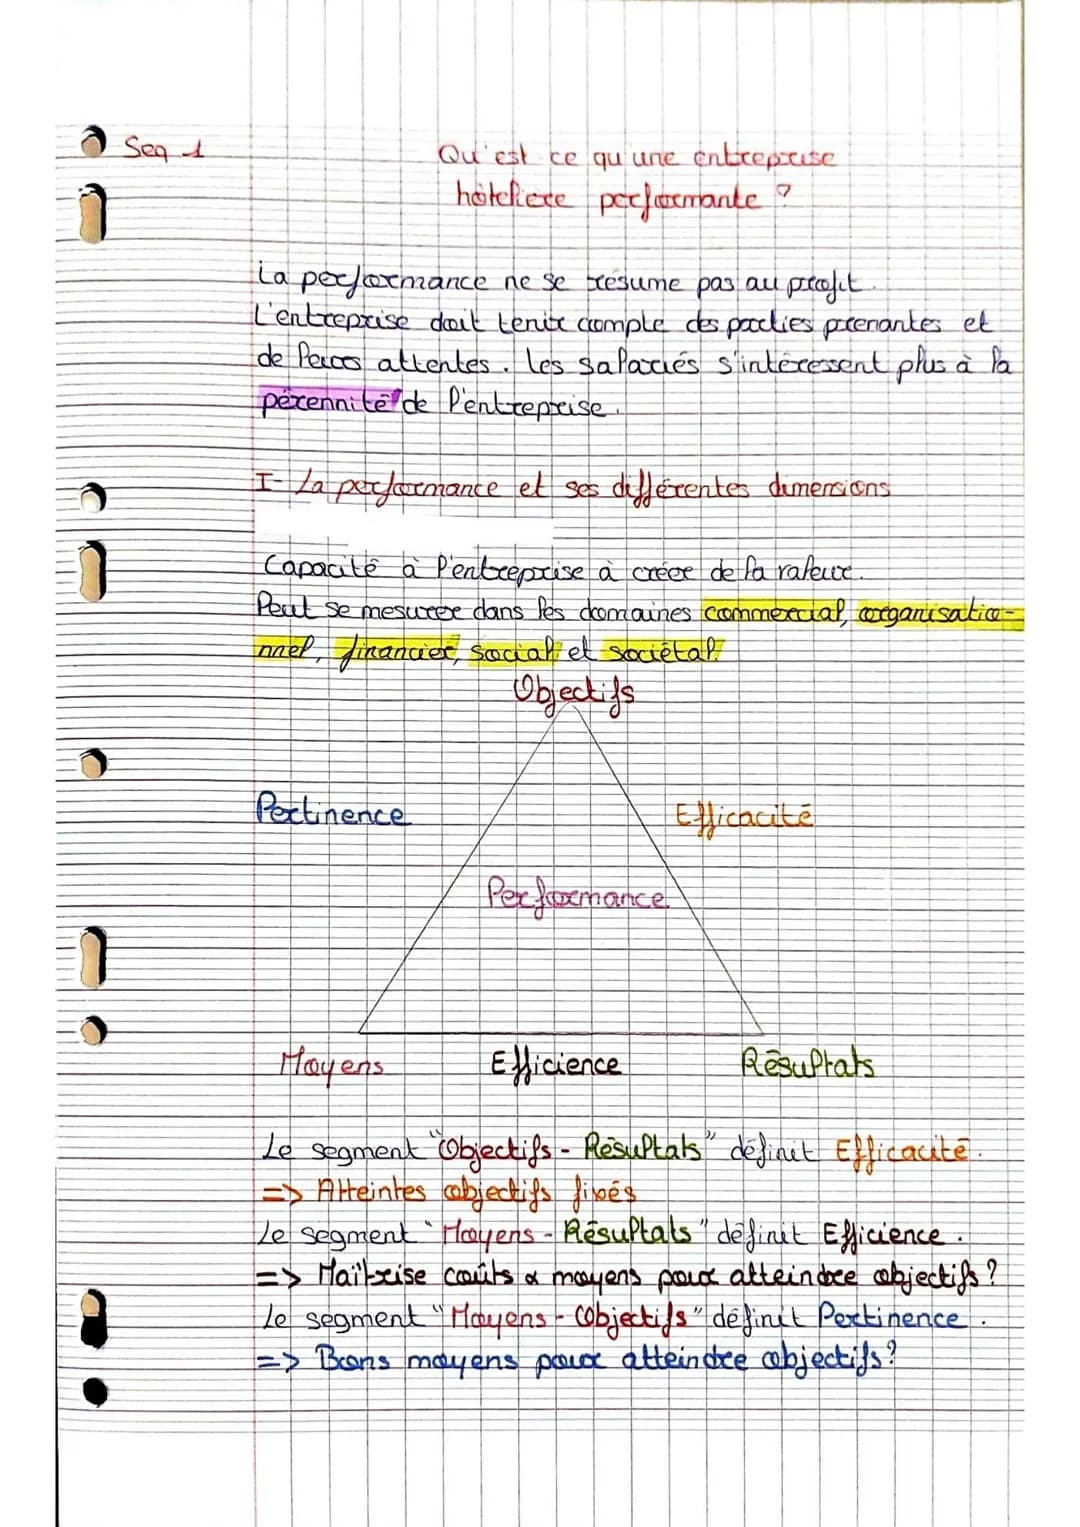 Seq 1
Qu'est ce qu'une entreprise
hôteliere performante ?
La performance ne se résume pas au profit.
L'entreprise doit tenir compte des parties prenantes et
de leurs attentes. les salariés s'intéressent plus à la
pérennité de l'entreprise.
I- La performance et ses différentes dimensions
Capacité à l'entreprise à créer de la valeur.
Peut se mesurer dans les domaines commercial, organisatio-
nnel, financier, social et sociétal.
Objectifs
Pertinence
Efficacité
Performance
Moyens
Efficience
Résultats
Le segment "Objectifs - Résultats" définit Efficacité.
=> Atteintes objectifs fixés
Le segment "Moyens - Résultats" définit Efficience.
=> Maîtrise coûts & moyens pour atteindre objectifs ?
Le segment "Moyens - Objectifs" définit Pertinence.
=> Bons moyens pour atteindre objectifs ?